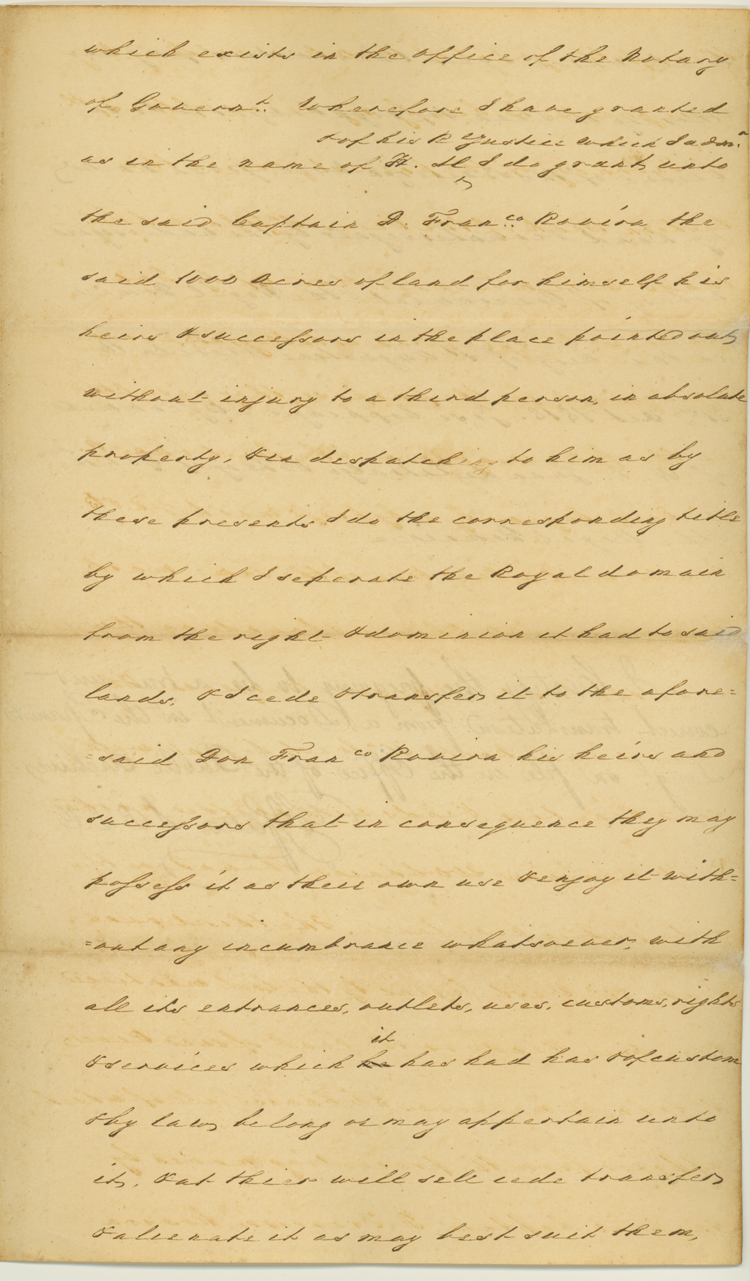 which exists in the office of the Notary
of Governt. Wherefore I have granted
& of his Rl Justice which I admr
as in the name of H. M. I do grant, unto
the said Captain D. Franco. Rovira the
said 1000 Acres of land for himself his
heirs & successors in the place pointed out,
without injury to a third person, in absolute
property, & in despatching to him as by
these presents I do the corresponding title
by which I seperate the Royal domain
from the right & dominion it had to said
lands, & I cede & transfer, it to the afore=
=said Don Franco Rovira his heirs and
successors that in consequence they may
possess it as their own use & enjoy it with=
=out any incumbrance whatsoever, with
all its entrances, outlets, uses, customs, rights
it
& services which he has had has & of custom
& by law, belong or may appertain unto
it, & at thier will sell cede transfer
& alienate it as may best suit them,